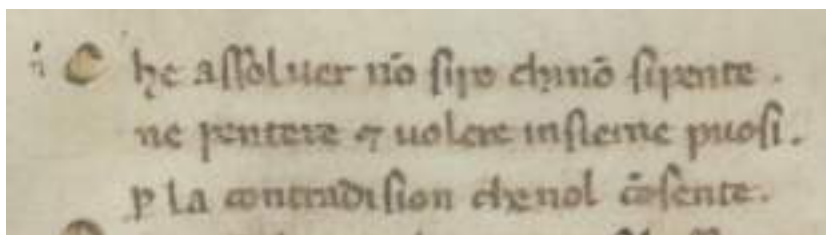 C he assoluer nō sipo chinō sipente .
ne pentere ⁊ uolere insieme puosi .
p la contradision chenol cōsente .